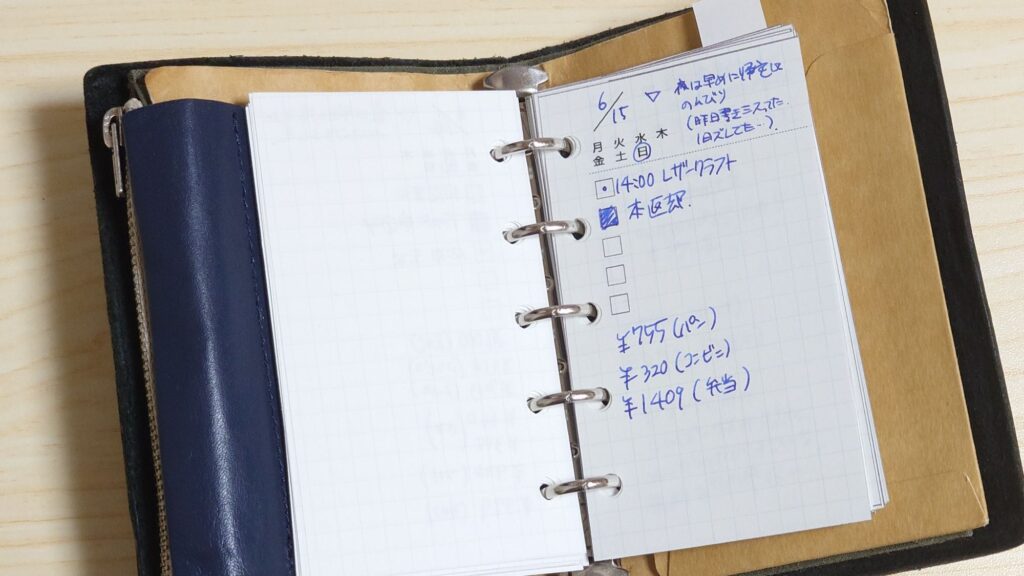 6/15
▽ 夜は早めに帰宅してのんびり
(昨日書きミスってた。
1日ズレてた…)
月 火 水 木
金 土 日
14:00 レザークラフト
本返却.
¥755(パン)
¥320(コンビニ)
¥1409(弁当)